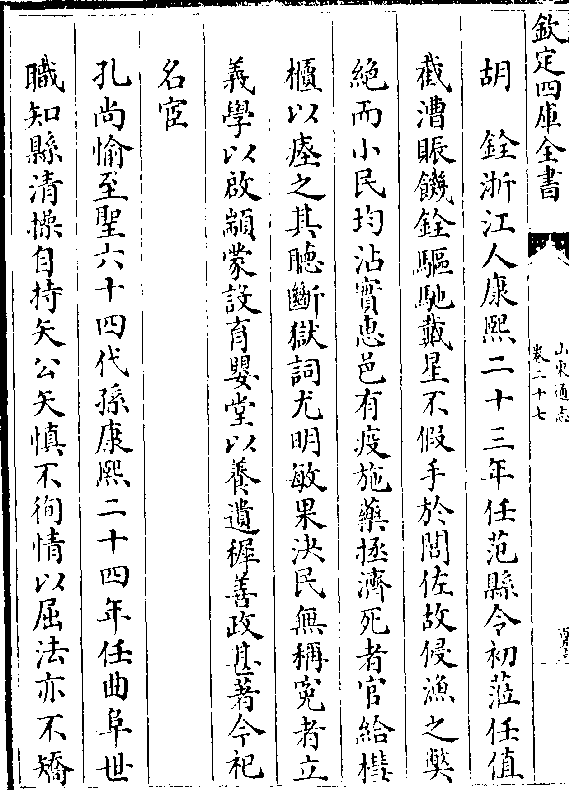 欽定四庫全書
山東通志
卷二十七
胡　銓浙江人康熙二十三年任范縣令初蒞任值
截漕賑饑銓驅馳戴星不假手於閭佐故侵漁之獘
絶而小民均沾實惠邑有疫施藥拯濟死者官給槥
櫃以瘞之其聽斷獄詞尤明敏果決民無稱寃者立
義學以啟顓蒙設育嬰堂以養遺穉善政甚著今祀
名宦
孔尚愉至聖六十四代孫康熙二十四年任曲阜世
職知縣清操自持矢公矢慎不徇情以屈法亦不矯